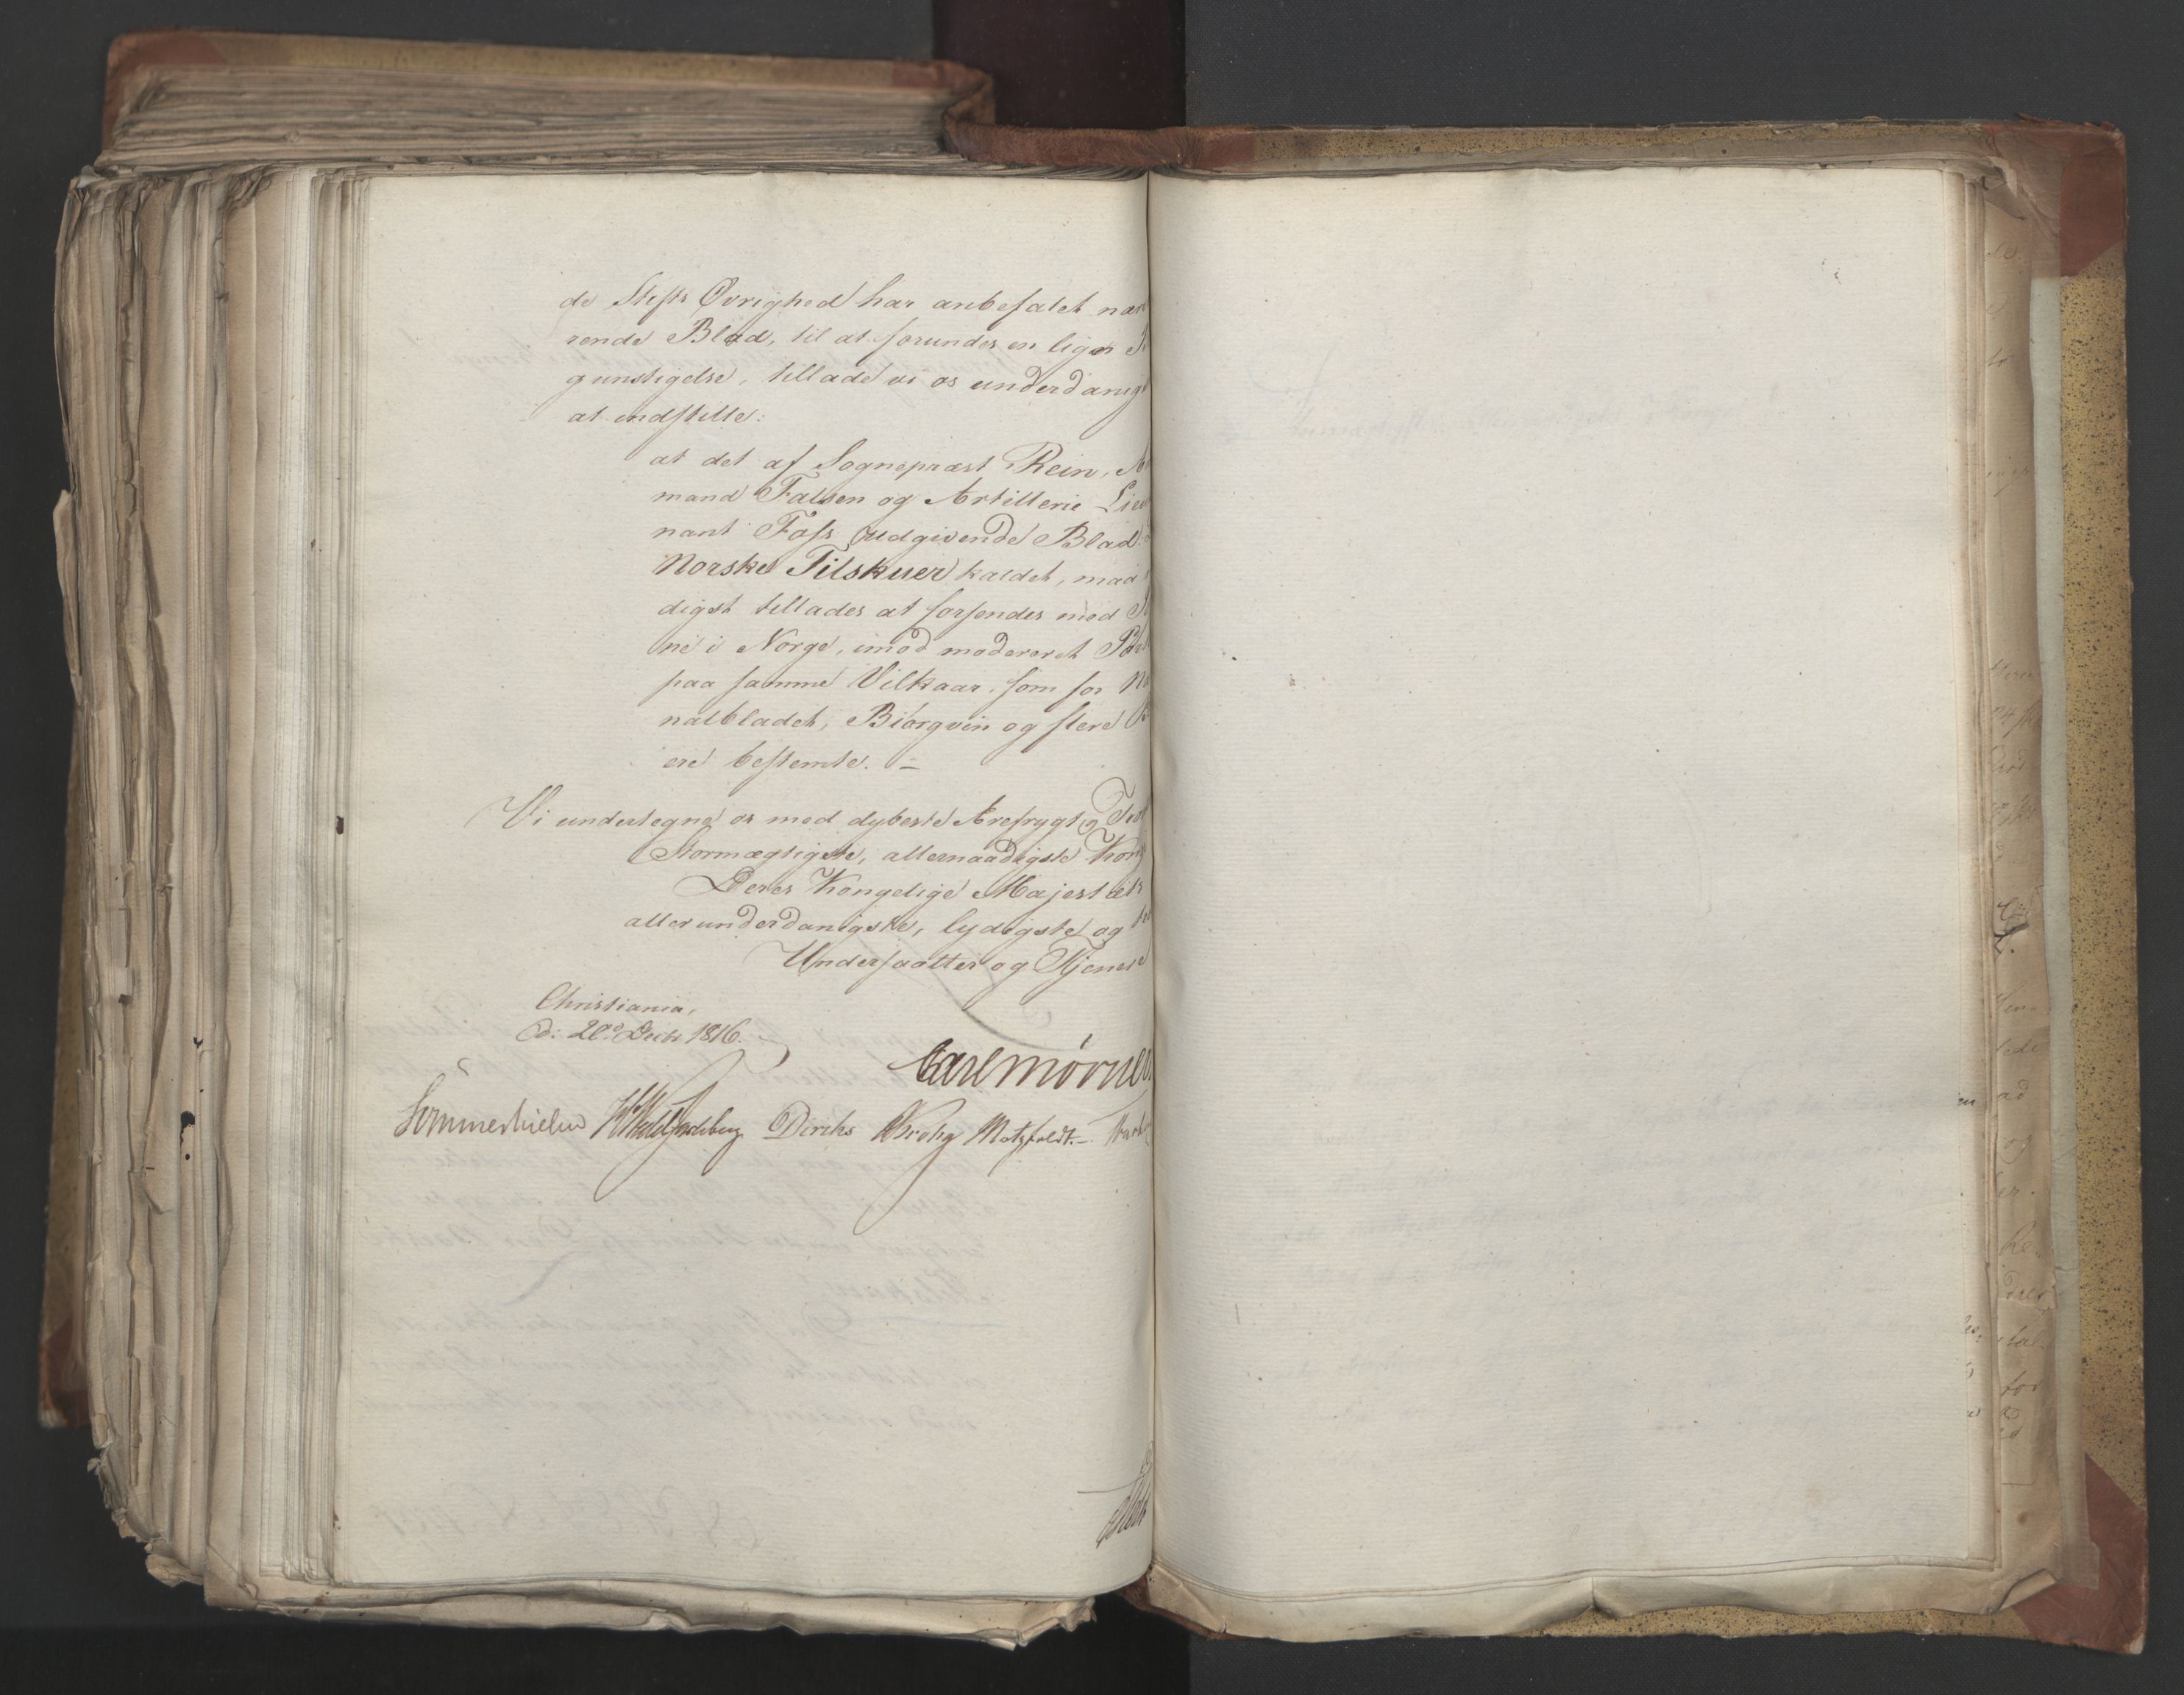 de Stifts Øvrighed har anbefalet nær
rende Blad, til at forundes en lign
gunstigelse, tillade vi os underdanigst
at indstille:
at det af Sognepræst Rein, A
mand Falsen og Artillerie Lieu
nant Foss udgivende Blad:
Norske Tilskuer kaldet, maa
digst tillades at forsendes med
ne i Norge, imod modereret Po
paa samme Vilkaar, som for Na
nalbladet, Biørgvin og flere
ere bestemte. —
Vi undertegne os med dybeste Ærefrygt og
Stormægtigste, allernaadigste Kon
Deres Kongelige Majestæts
allerunderdanigste, lydigste og
Undersaatter og Tjenere
Christiania,
d: 20de Decbr 1816.
Carl Mørner
Sommerhielm Diriks Krohg Motzfeldt.